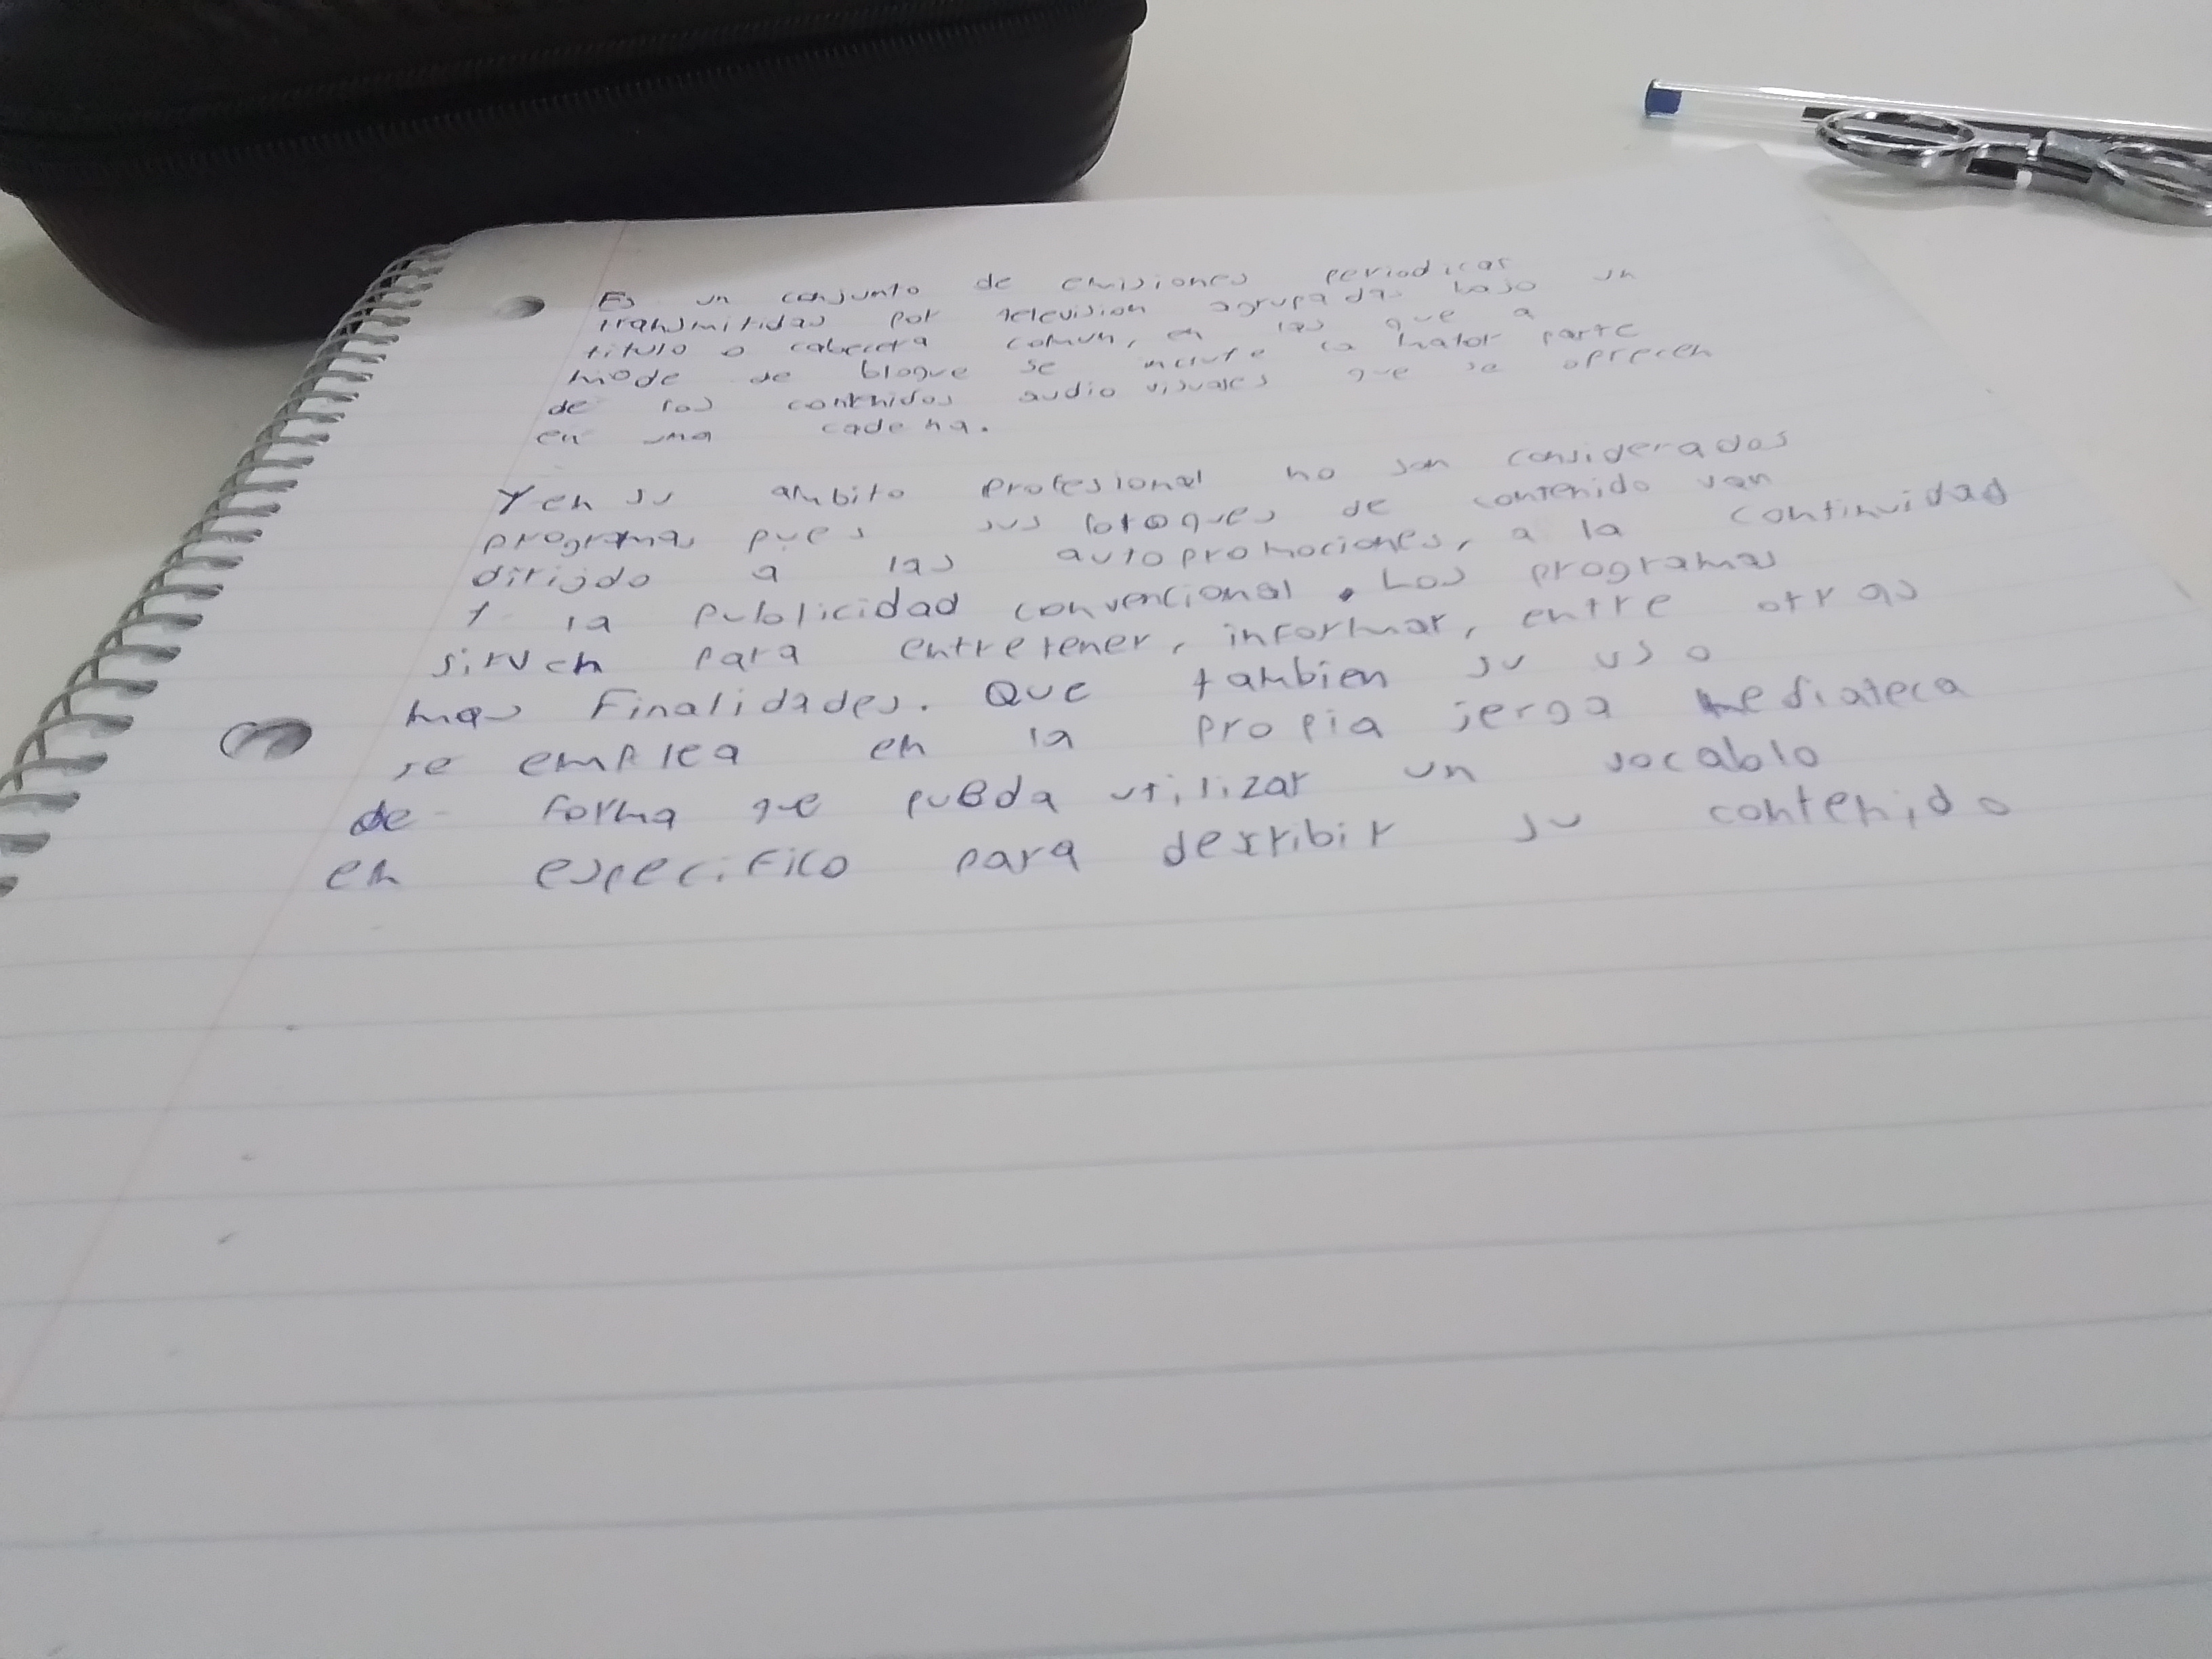 Es un conjunto de emisiones periodicas
transmitidas por television agrupadas bajo un
titulo o cabecera comun, en las que a
mode de bloque se incluye la mayor parte
de los contenidos audio visuales que se ofrecen
en una cadena.
Y en su ambito profesional no son considerados
programas pues sus bloques de contenido van
dirijdo a las autopromociones, a la continuidad
y la publicidad convencional. Los programas
sirven para entretener, informar, entre otras
mas finalidades. Que tambien su uso
se emplea en la propia jerga mediateca
de forma que pueda utilizar un vocablo
en especifico para desxribir su contenido